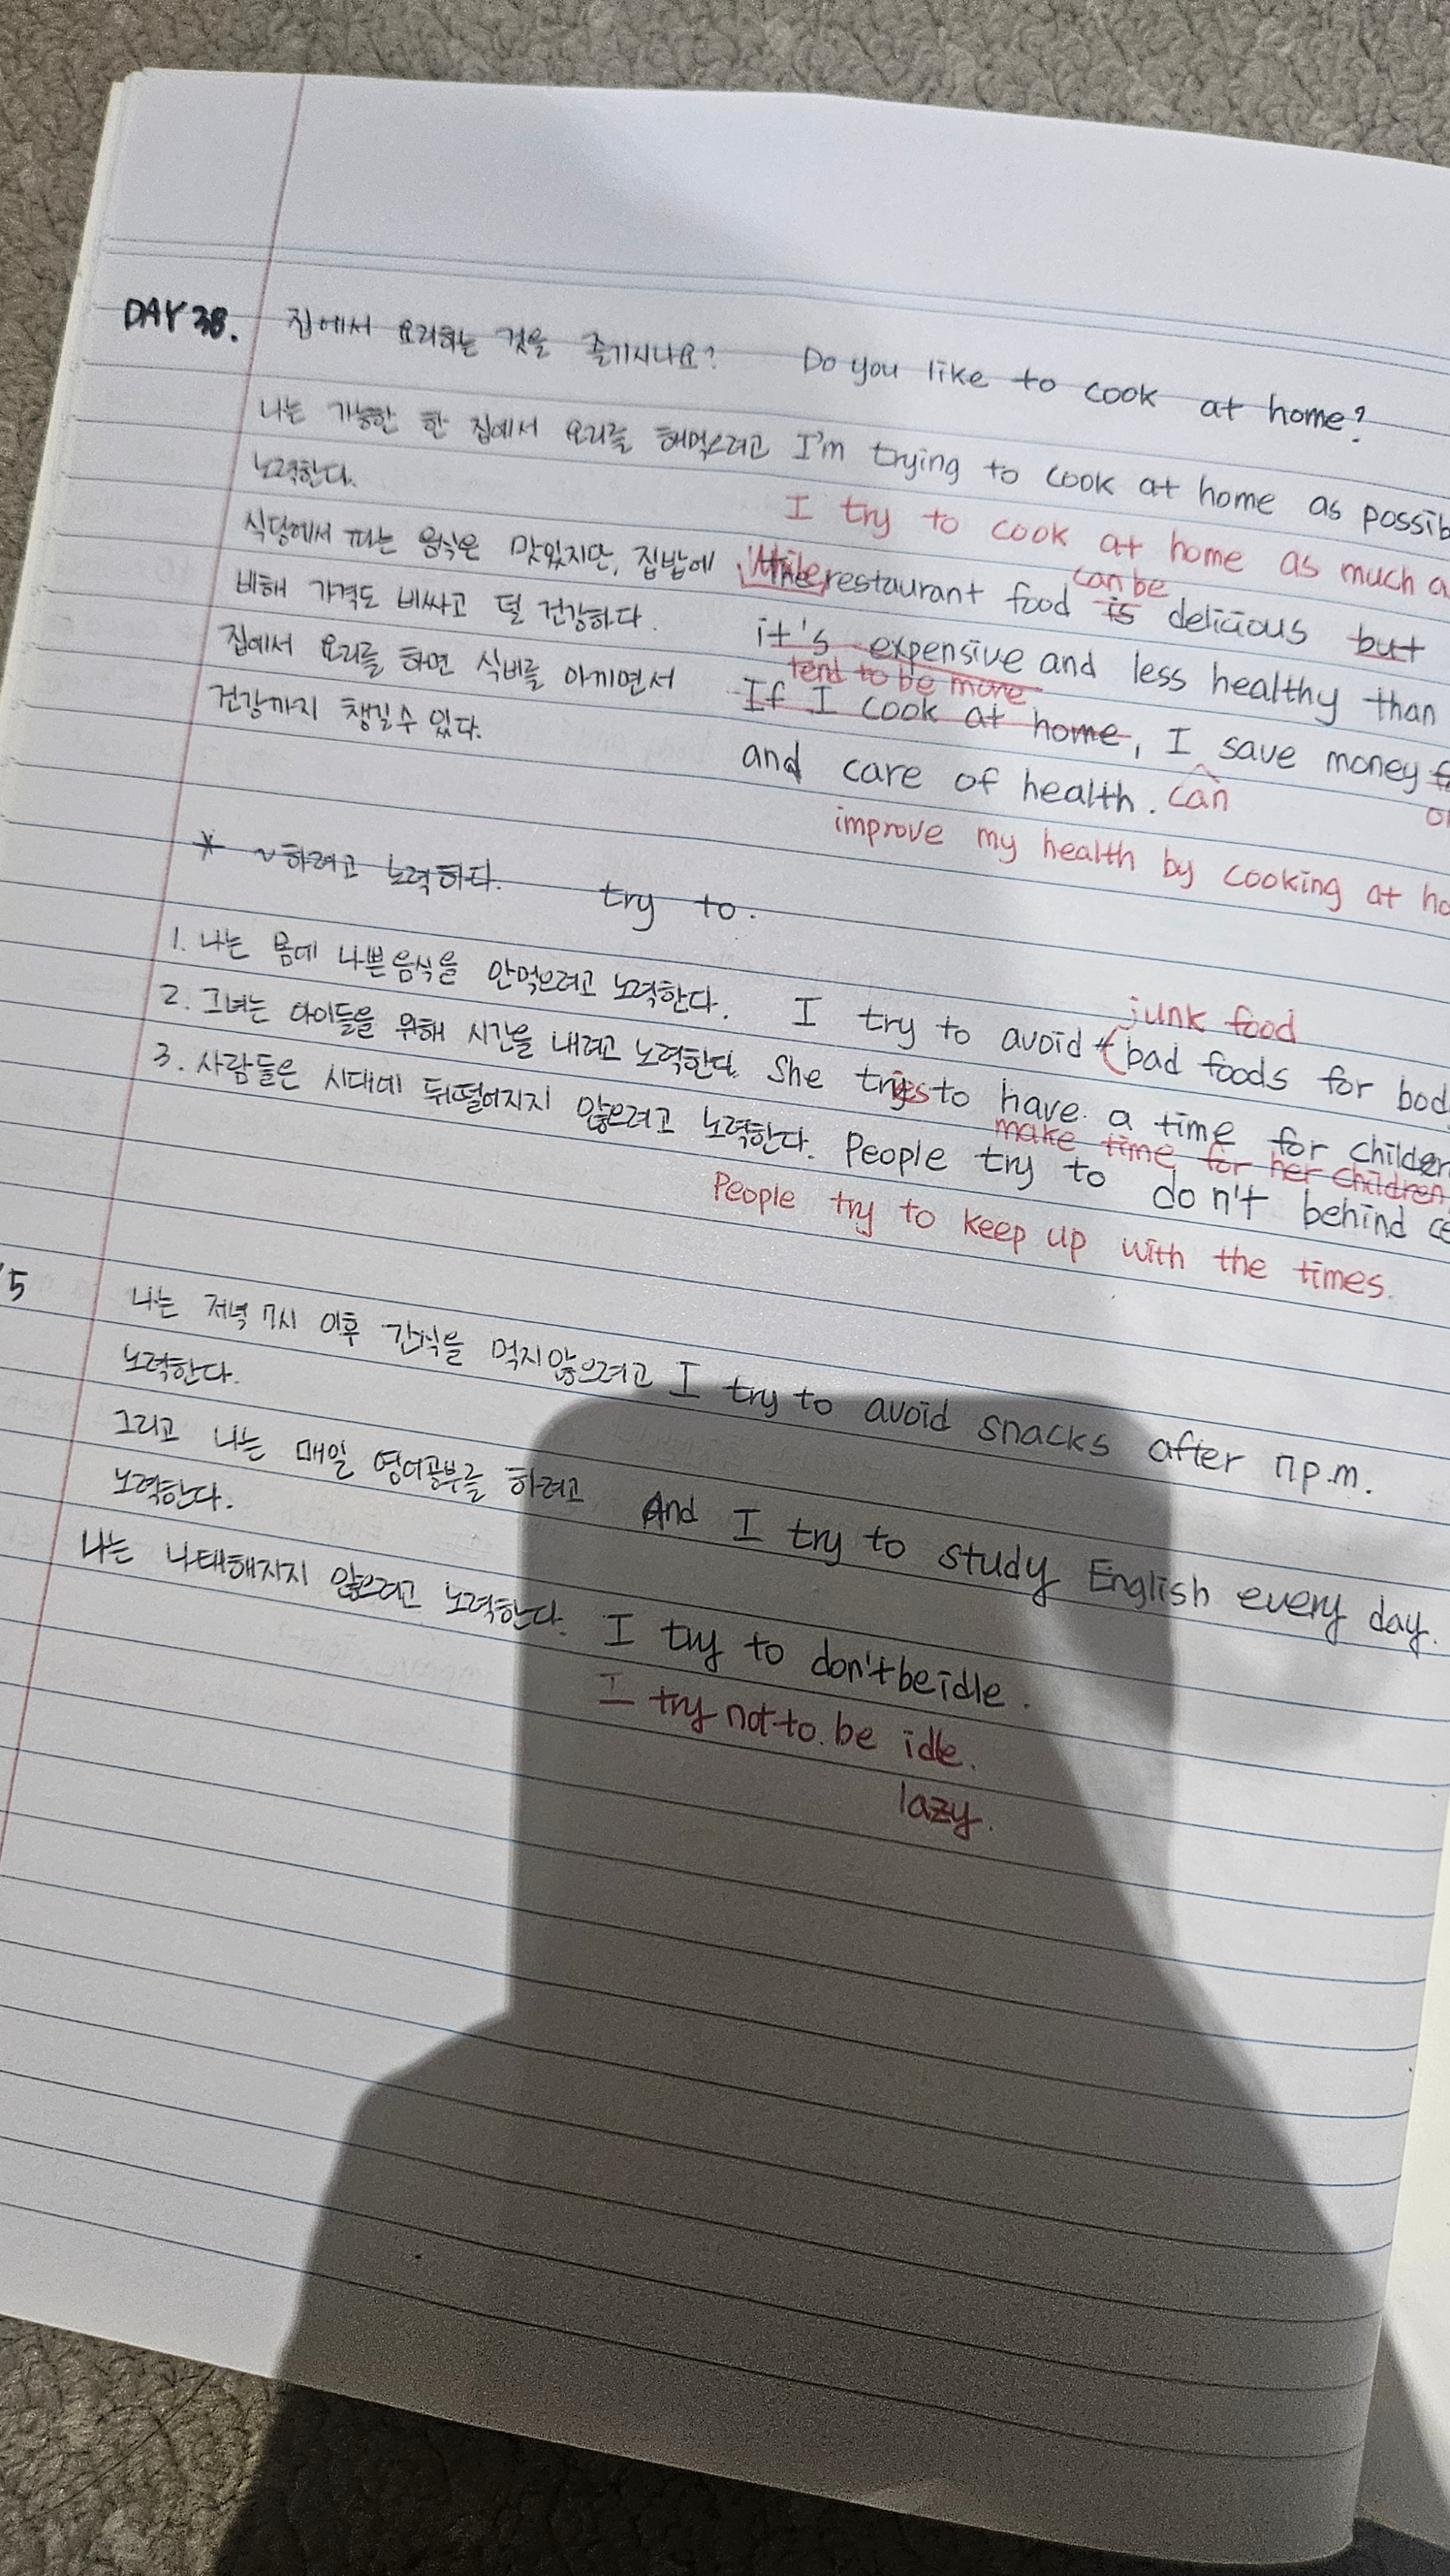 DAY 38. 집에서 요리하는 것을 즐기시나요? Do you like to cook at home?
나는 가능한 한 집에서 요리를 해먹으려고 I'm trying to cook at home as
노력한다.
I try to cook at home as much
식당에서 파는 음식은 맛있지만, 집밥에 While the restaurant food is delicious but
can be
비해 가격도 비싸고 덜 건강하다. it's expensive and less healthy than
tend to be more
집에서 요리를 하면 식비를 아끼면서 If I cook at home, I save money
건강까지 챙길수 있다. and care of health. can
improve my health by cooking at
* ~하려고 노력하다. try to.
1. 나는 몸에 나쁜음식을 안먹으려고 노력한다. I try to avoid bad foods for
junk food
2. 그녀는 아이들을 위해 시간을 내려고 노력한다. She tries to have a time for
make time for her children
3. 사람들은 시대에 뒤떨어지지 않으려고 노력한다. People try to don't behind
People try to keep up with the times.
/5 나는 저녁 7시 이후 간식을 먹지않으려고 I try to avoid snacks after 7p.m.
노력한다.
그리고 나는 매일 영어공부를 하려고 And I try to study English every day.
노력한다.
나는 나태해지지 않으려고 노력한다. I try to don't be idle.
I try not to be idle.
lazy.